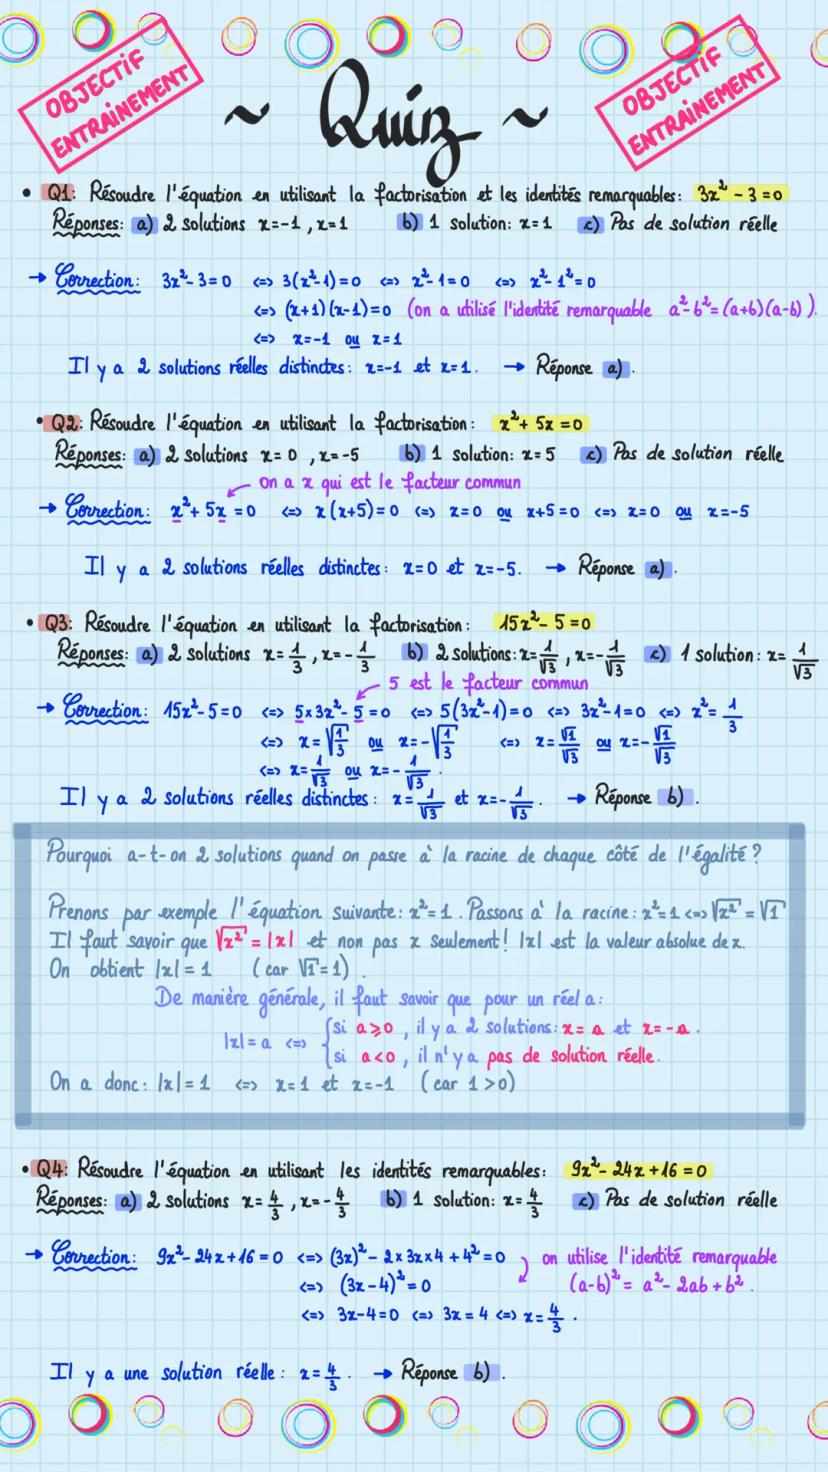 OBJECTIF
ENTRAINEMENT
OBJECTIF
ENTRAINEMENT
~ Quiz ~
• Q1: Résoudre l'équation en utilisant la factorisation et les identités remarquables: 3x² - 3 = 0
Réponses: a) 2 solutions x=-1, x=1 b) 1 solution: x=1 c) Pas de solution réelle
→ Correction: 3x²-3=0 <=> 3(x²-1)=0 <=> x²-1=0 <=> x²-1²=0
<=> (x+1)(x-1)=0 (on a utilisé l'identité remarquable a²-b²=(a+b)(a-b)).
<=> x=-1 ou x=1
Il y a 2 solutions réelles distinctes: x=-1 et x=1. → Réponse a).
• Q2: Résoudre l'équation en utilisant la factorisation: x²+5x=0
Réponses: a) 2 solutions x=0, x=-5 b) 1 solution: x=5 c) Pas de solution réelle
on a x qui est le facteur commun
→ Correction: x²+5x=0 <=> x(x+5)=0 <=> x=0 ou x+5=0 <=> x=0 ou x=-5
Il y a 2 solutions réelles distinctes: x=0 et x=-5. → Réponse a).
• Q3: Résoudre l'équation en utilisant la factorisation: 15x²-5=0
Réponses: a) 2 solutions x=1/3, x=-1/3 b) 2 solutions: x=1/√3, x=-1/√3 c) 1 solution: x=1/√3
5 est le facteur commun
→ Correction: 15x²-5=0 <=> 5×3x²-5=0 <=> 5(3x²-1)=0 <=> 3x²-1=0 <=> x²=1/3
<=> x=√(1/3) ou x=-√(1/3) <=> x=√1/√3 ou x=-√1/√3
<=> x=1/√3 ou x=-1/√3.
Il y a 2 solutions réelles distinctes: x=1/√3 et x=-1/√3. → Réponse b).
Pourquoi a-t-on 2 solutions quand on passe à la racine de chaque côté de l'égalité?
Prenons par exemple l'équation suivante: x²=1. Passons à la racine: x²=1 <=> √x² = √1
Il faut savoir que √x² = |x| et non pas x seulement! |x| est la valeur absolue de x.
On obtient |x|=1 (car √1=1).
De manière générale, il faut savoir que pour un réel a:
si a⩾0, il y a 2 solutions: x=a et x=-a.
|x|=a <=> {
si a<0, il n'y a pas de solution réelle.
On a donc: |x|=1 <=> x=1 et x=-1 (car 1>0)
• Q4: Résoudre l'équation en utilisant les identités remarquables: 9x²-24x+16=0
Réponses: a) 2 solutions x=4/3, x=-4/3 b) 1 solution: x=4/3 c) Pas de solution réelle
→ Correction: 9x²-24x+16=0 <=> (3x)²-2×3x×4+4²=0 on utilise l'identité remarquable
<=> (3x-4)²=0 (a-b)²=a²-2ab+b².
<=> 3x-4=0 <=> 3x=4 <=> x=4/3.
Il y a une solution réelle: x=4/3. → Réponse b).